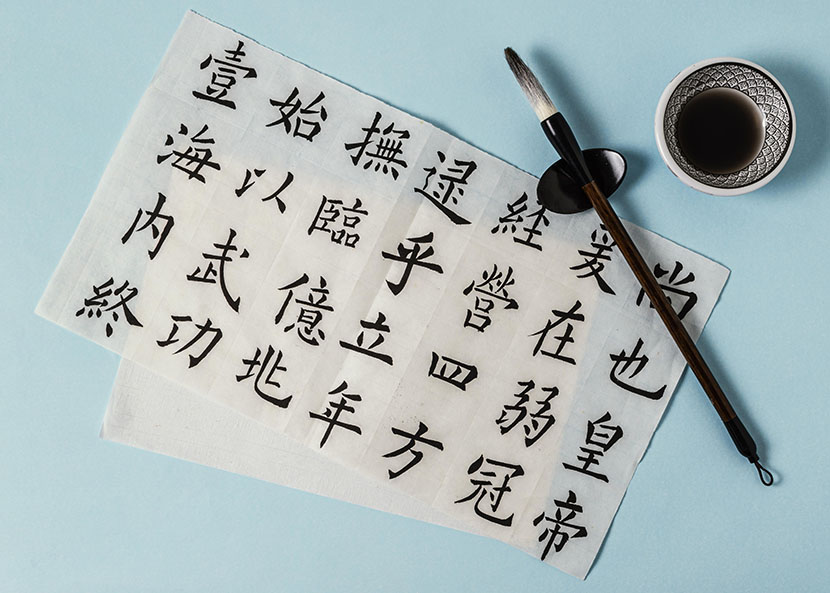 尚也皇帝
爰在弱冠
經營四方
逮乎立年
撫臨億兆
始以武功
壹海內終